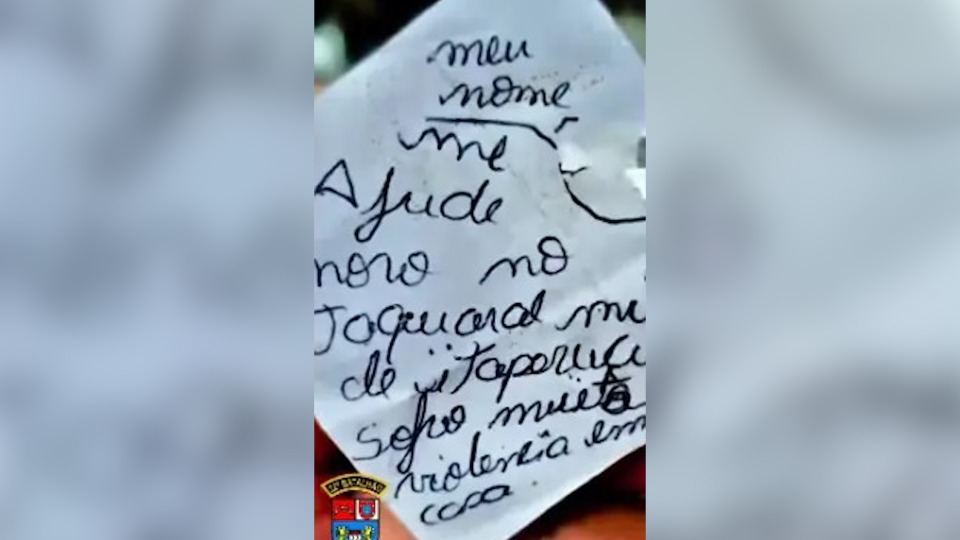 meu
nome
me
Ajude
moro no
Taquaral mu
de itaperuçu
sofro muita
violencia em
casa.
BATALHÃO